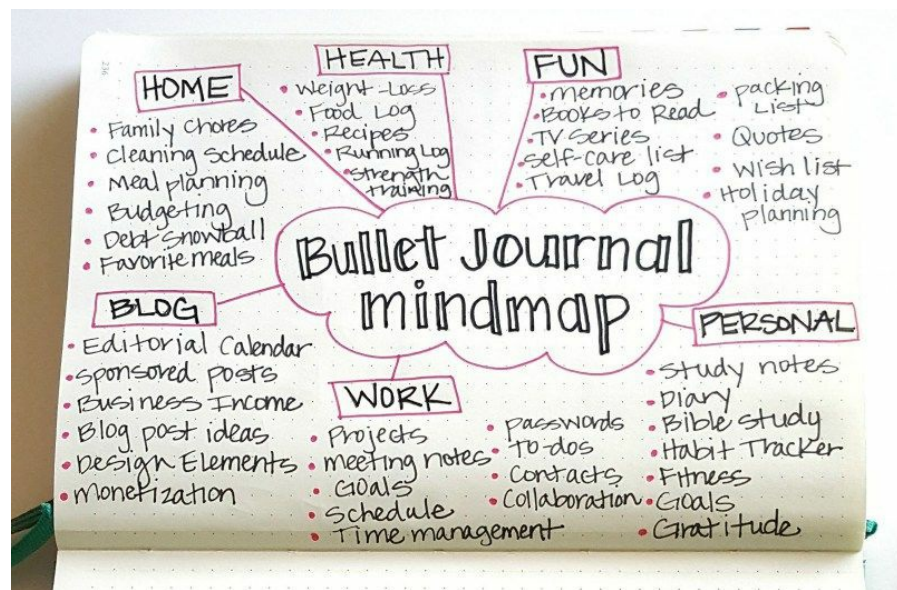 HOME
• Family Chores
• Cleaning Schedule
• Meal planning
• Budgeting
• Debt Snowball
• Favorite meals
HEALTH
• Weight-Loss
• Food Log
• Recipes
• Running Log
• Strength
training
FUN
• memories
• Books to Read
• TV Series
• Self-care list
• Travel Log
• packing
List
• Quotes
• Wish list
• Holiday
planning
Bullet Journal
mindmap
BLOG
• Editorial Calendar
• Sponsored posts
• Business Income
• Blog post ideas
• Design Elements
• Monetization
WORK
• Projects
• meeting notes
• Goals
• Schedule
• Time management
• passwords
• To-dos
• Contacts
• Collaboration
PERSONAL
• Study notes
• Diary
• Bible study
• Habit Tracker
• Fitness
• Goals
• Gratitude